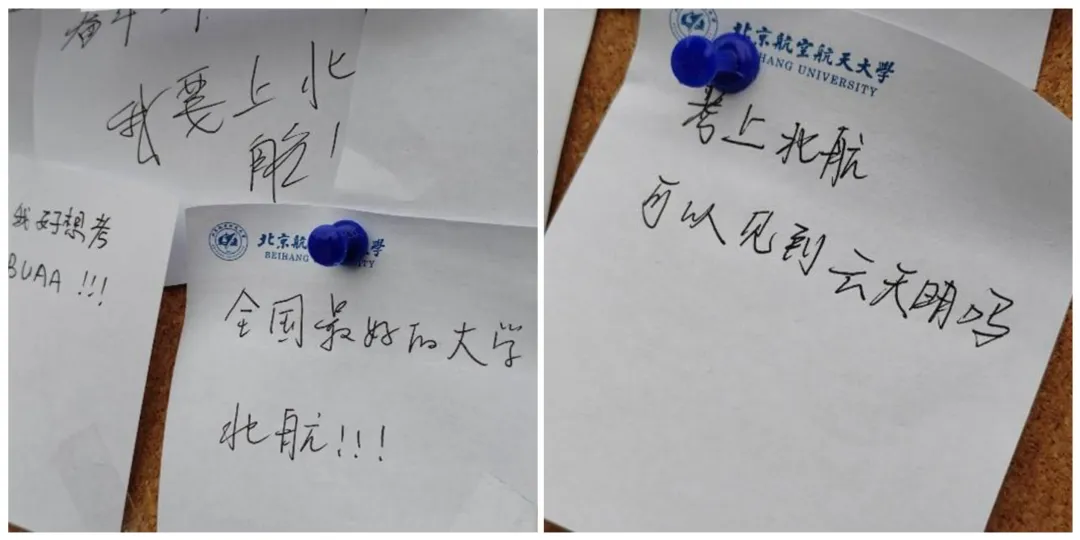 奋斗
我要上北
航!
我好想考
BUAA !!!
北京航 學
BEIHANG UNIVERSITY
全国最好的大学
北航!!!
北京航空航天大學
BEIHANG UNIVERSITY
考上北航
可以见到云天明吗